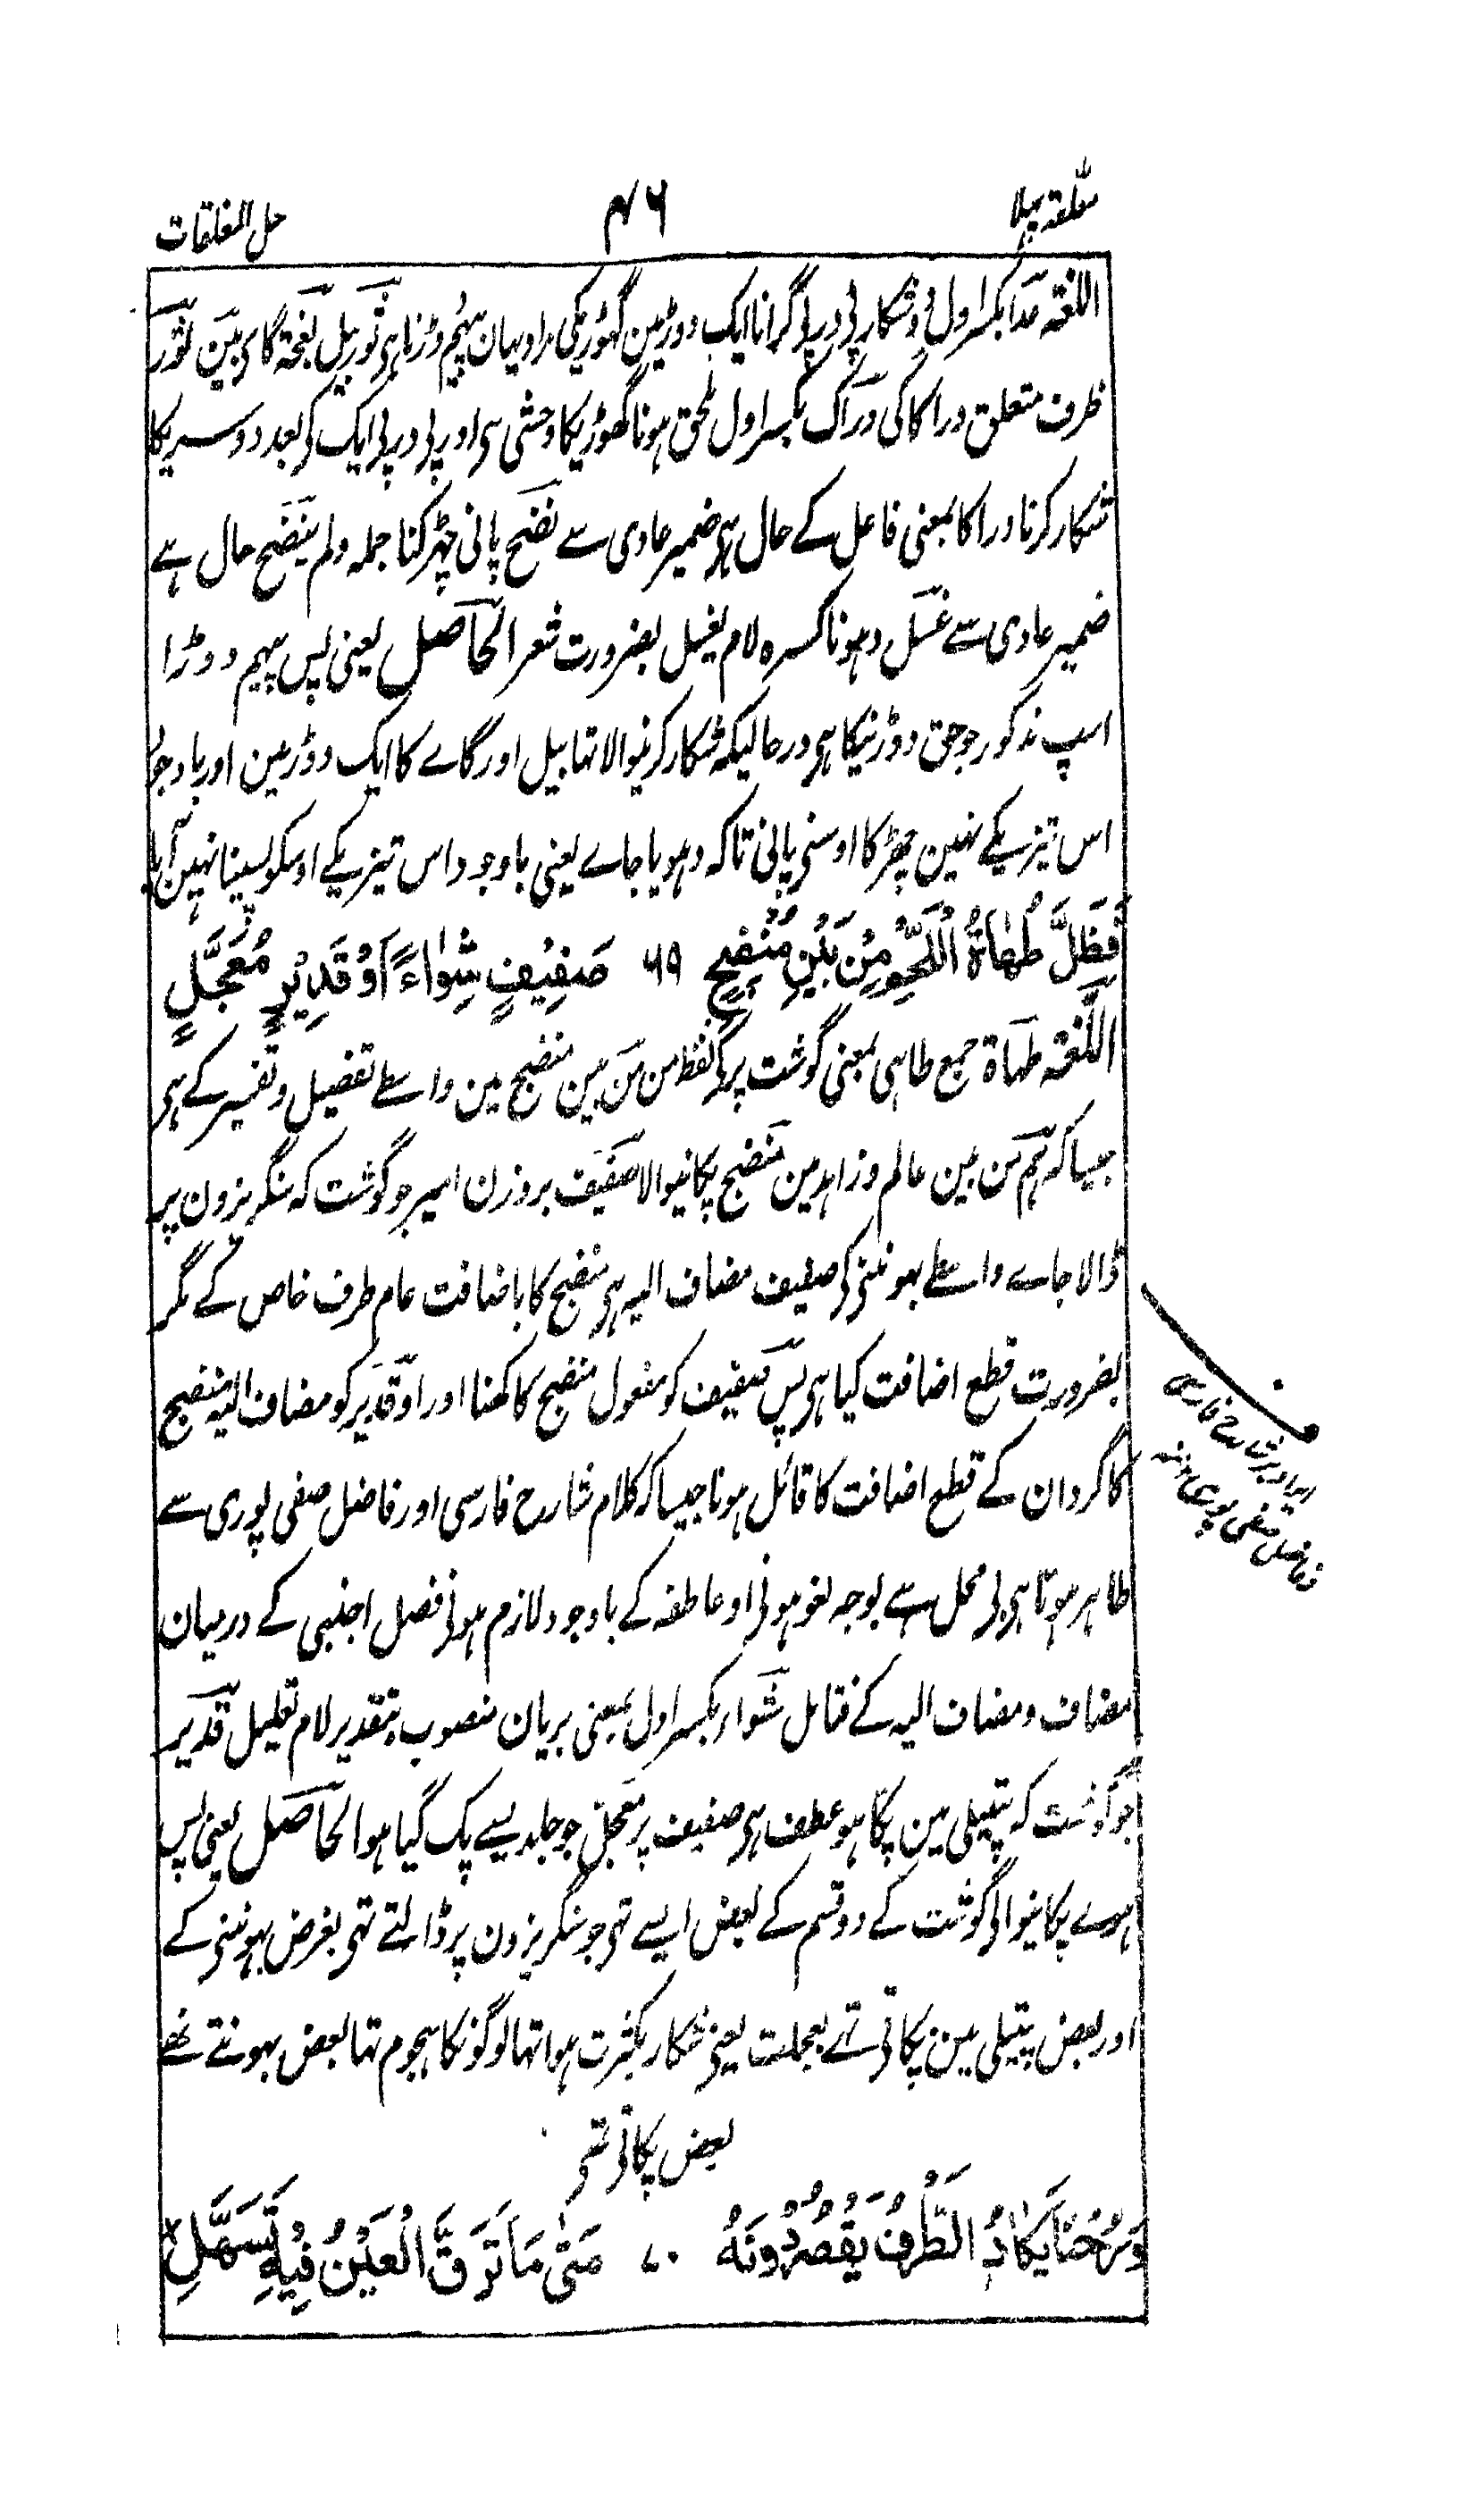 معلقہ پہلا
۴۶
حل المغلقات
اللغۃ عدا بکسر اول دو شکار پی در پی گرانا ایک دوڑ مین گھوڑیکی مراد یہان پیہم دوڑنا ہی ثور بیل نعجۃ گای بین ثور
ظرف متعلق دراکا کی دراک بکسر اول ملحق ہونا گھوڑیکا وحشی سی اور پی در پی ایک کی بعد دوسریکا
شکار کرنا دراکا بمعنی فاعل کے حال ہی ضمیر عادی سے نضح پانی چھڑکنا جملہ ولم ینضح حال ہے
ضمیر عادی سے غسل دہونا کسرہ لام یغسل بضرورت شعر الحاصل یعنی پس پیہم دوڑا
اسپ مذکور جو حق دوڑنیکا ہی درحالیکہ شکار کرنیوالا تہا بیل اور گاے کا ایک دوڑ مین اور باوجود
اس تیزیکے نہین چھڑکا اوسنی پانی تاکہ دہویا جاے یعنی باوجود اس تیزیکے اوسکو پسینا نہین آیا
فَظَلَّ طُهَاةُ اللَّحْمِ مِنْ بَيْنِ مُنْضِجٍ ۶۹ صَفِيْفٍ شِوَاءً اَوْ قَدِيْرٍ مُعَجَّلٍ
اللغۃ طہاۃ جمع طاہی بمعنی گوشت پز لفظ من من بین منضج مین واسطے تفصیل و تفسیر کے ہی
جیسا کہ ہم من بین عالم و زاہد مین منضج پکانیوالا صفیف بروزن امیر جو گوشت کہ سنگریزون پر
ڈالا جاے واسطے بھوننی کی صفیف مضاف الیہ ہی منضج کا باضافت عام طرف خاص کے مگر
بضرورت قطع اضافت کیا ہی پس صفیف کو مفعول منضج کا کہنا اور او قدیر کو مضاف الیہ منضج
کا گردان کے قطع اضافت کا قائل ہونا جیسا کہ کلام شارح فارسی اور فاضل صفی پوری سے
ظاہر ہوتا ہی بی محل ہے بوجہ لغو ہونی او عاطفہ کے باوجود لازم ہونی فصل اجنبی کے درمیان
مضاف و مضاف الیہ کے فتامل شواء بکسر اول بمعنی بریان منصوب بتقدیر لام تعلیل قدیر
جو گوشت کہ پتیلی مین پکا ہو عطف ہی صفیف پر معجل جو جلدیسے پک گیا ہو الحاصل یعنی پس
ہوے پکانیوالی گوشت کے دو قسم کے بعض ایسے تہی جو سنگریزون پر ڈالتے تہی بغرض بہوننی کے
اور بعض پتیلی مین پکاتی تہے بعجلت یعنی شکار بکثرت ہوا تہا لوگونکا ہجوم تہا بعض بہونتے تھے
بعض پکاتی تہی
وَرُحْنَا يَكَادُ الطَّرْفُ يَقْصُرُ دُونَهُ ۷۰ مَتٰى مَا تَرَقَّ الْعَيْنُ فِيْهِ تَسَهَّلِ
شارح فارسی
فاضل صفی پوری